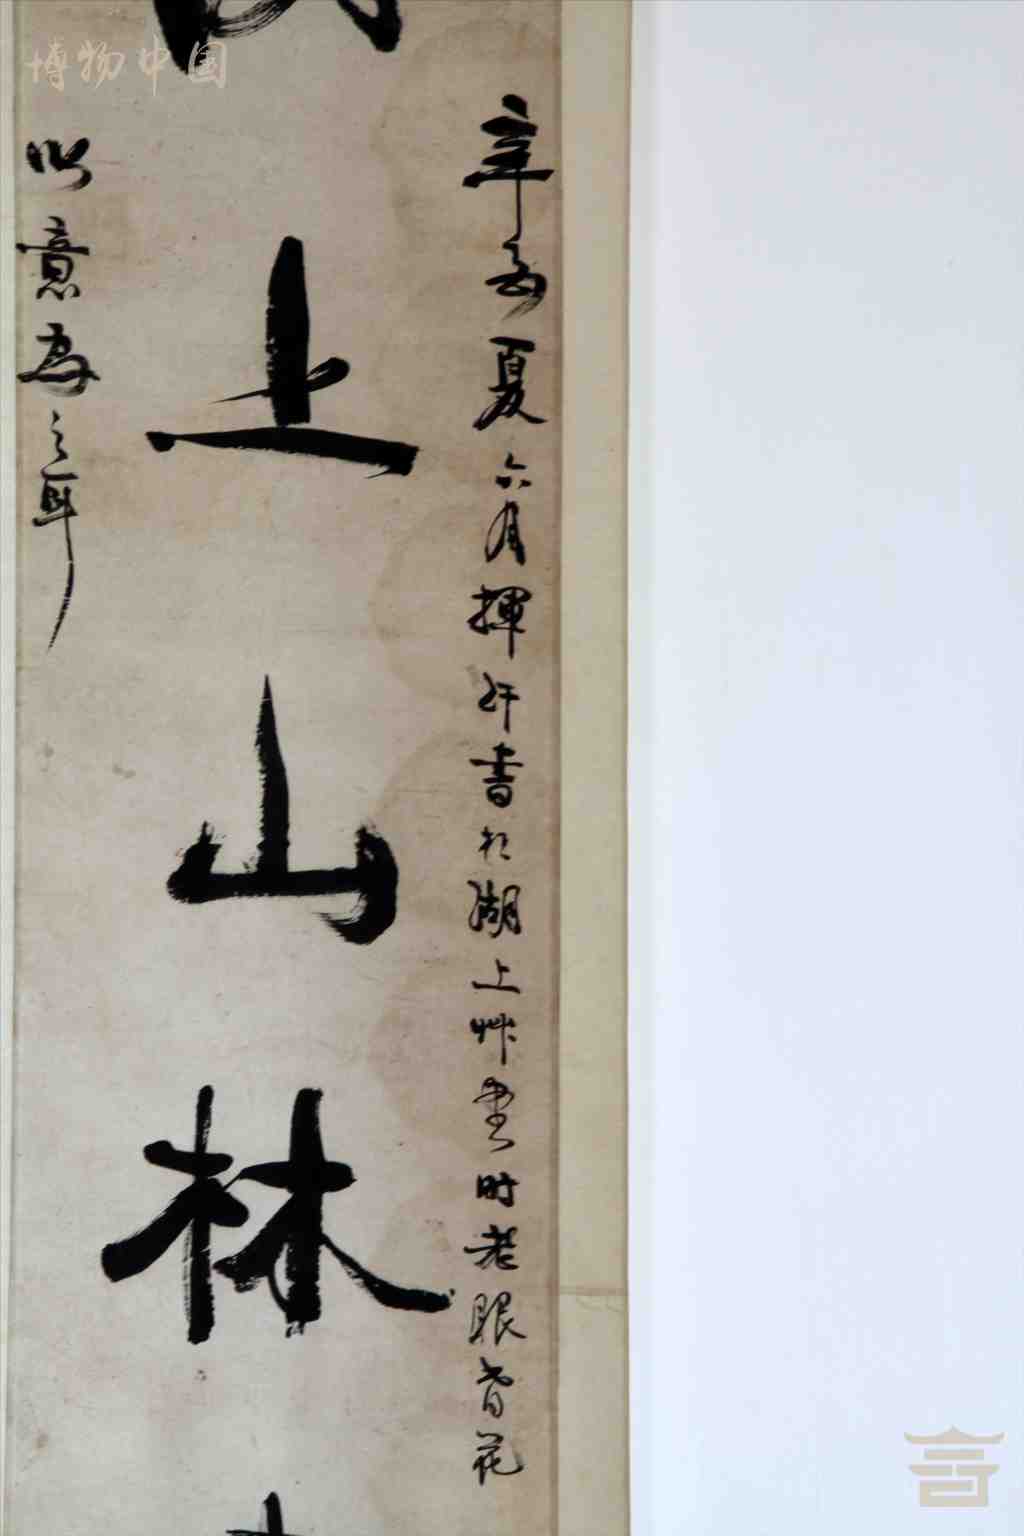 博物中国
辛丣夏六月揮汗書於湖上艸堂时老眼昏花
上山林
以意為之耳